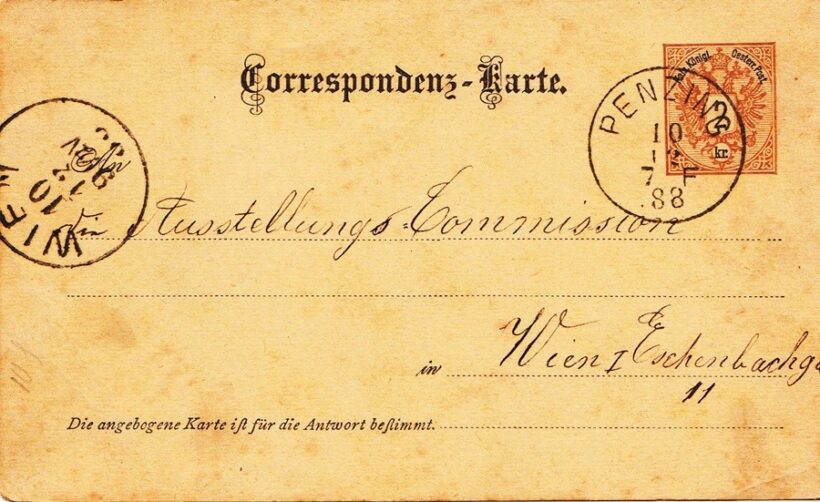 Correspondenz-Karte.
Kais. Königl. Oesterr. Post.
2
kr.
PENZING
10
12
7 F
88
WIEN
10
12
An
die Ausstellungs-Commission
in Wien I Eschenbachg
11
Die angebogene Karte iſt für die Antwort beſtimmt.